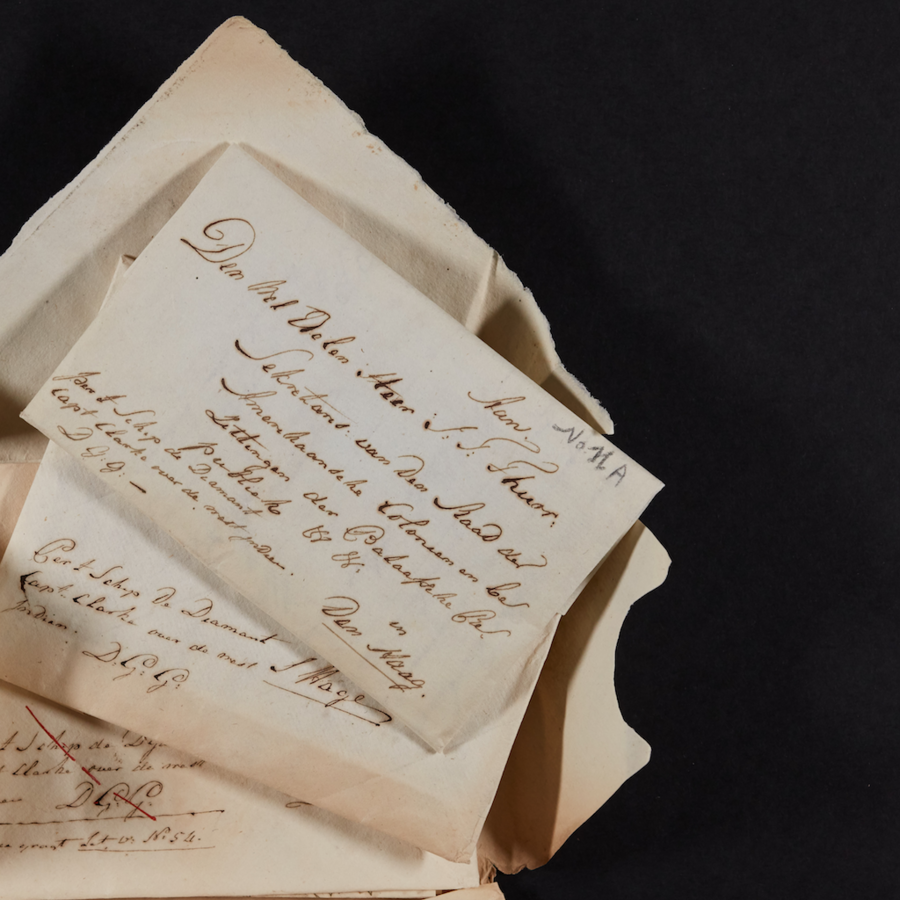 No. 11 A
Aan
Den Wel Edelen Heer J. J. Thuor.
Sekretaris van Den Raad der
Amerikaansche Colonien en be
zittingen der Bataafsche
Publiek &c &c.
in
Den Haag.
per t Schip de Diamant
Capt. Clarke over de west Indien.
D. G. G. –
Per t Schip De Diamant
Capt. Clarke over de west
Indien.
D. G. G.
S'Hage
t Schip de
t Clarke over de west
D G. G.
Let vs No. 54.